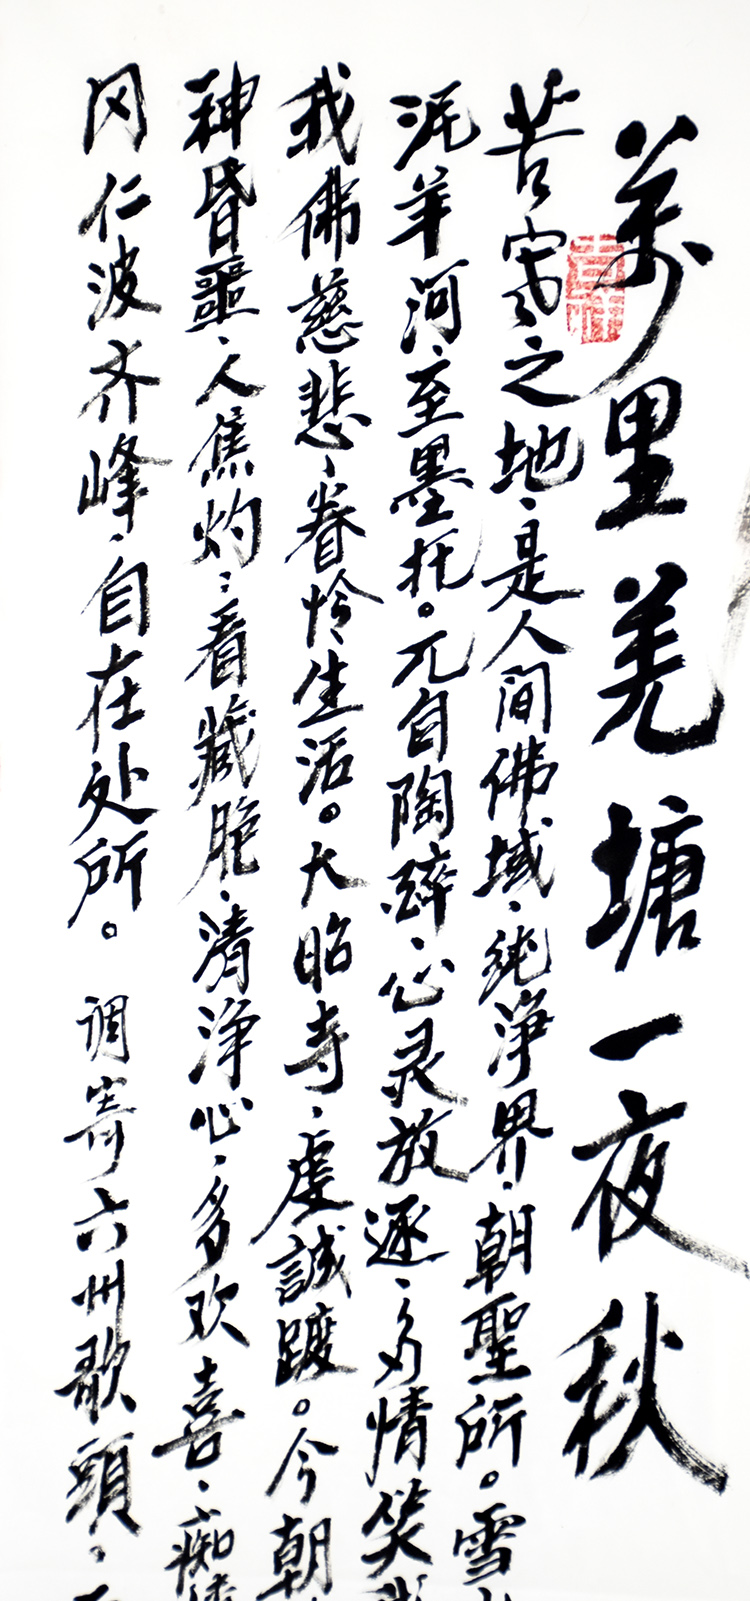 萬里羌塘一夜秋
苦寒之地、是人間佛域、純淨界、朝聖所。雪
泥羊河、至墨托。兀自陶醉、心灵放逐、多情笑
我佛慈悲、眷怜生活。大昭寺、虔誠踱。今朝
神昏噩、人焦灼；看藏脆、清淨心、多欢喜、痴
冈仁波齐峰、自在处所。 调寄六州歌頭、